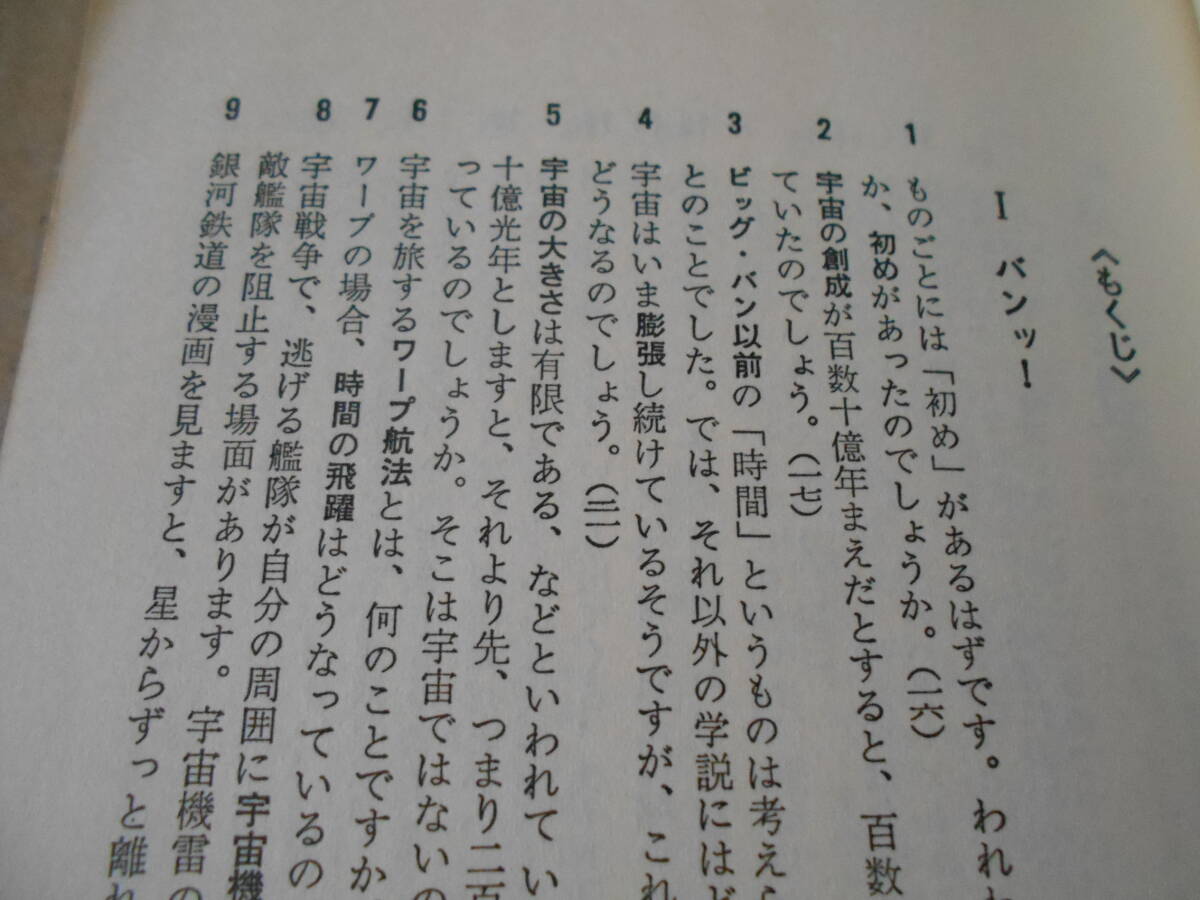 〈もくじ〉
I バンッ！
1 ものごとには「初め」があるはずです。われわ
か、初めがあったのでしょうか。（一六）
2 宇宙の創成が百数十億年まえだとすると、百数
ていたのでしょう。（一七）
3 ビッグ・バン以前の「時間」というものは考えら
とのことでした。では、それ以外の学説にはど
4 宇宙はいま膨張し続けているそうですが、これ
どうなるのでしょう。（三一）
5 宇宙の大きさは有限である、などといわれてい
十億光年としますと、それより先、つまり二百
っているのでしょうか。そこは宇宙ではないの
6 宇宙を旅するワープ航法とは、何のことですか
7 ワープの場合、時間の飛躍はどうなっているの
8 宇宙戦争で、逃げる艦隊が自分の周囲に宇宙機
敵艦隊を阻止する場面があります。宇宙機雷の
9 銀河鉄道の漫画を見ますと、星からずっと離れ